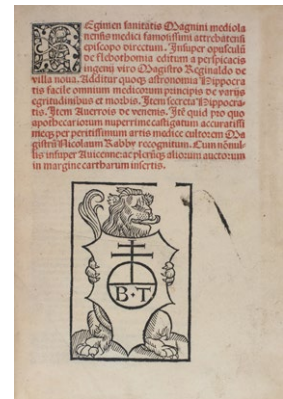 Regimen sanitatis Magnini mediola
nensis medici famosissimi attrebatensi
episcopo directum. Insuper opusculũ
de flebothomia editum a perspicacis
ingenij viro Magistro Reginaldo de
villa noua. Additur quoqz astronomia Hippocra
tis facile omnium medicorum principis de varijs
egritudinibus et morbis. Item secreta Hippocra
tis. Item Auerrois de venenis. Itẽ quid pro quo
apothecariorum nuperrime castigatum accuratissi
meqz per peritissimum artis medice cultorem Ma
gistrũ Nicolaum Rabby recognitum. Cum nonul
lis insuper Auicenne: ac pleriqz aliorum auctorum
in margine cartharum insertis.
B · T